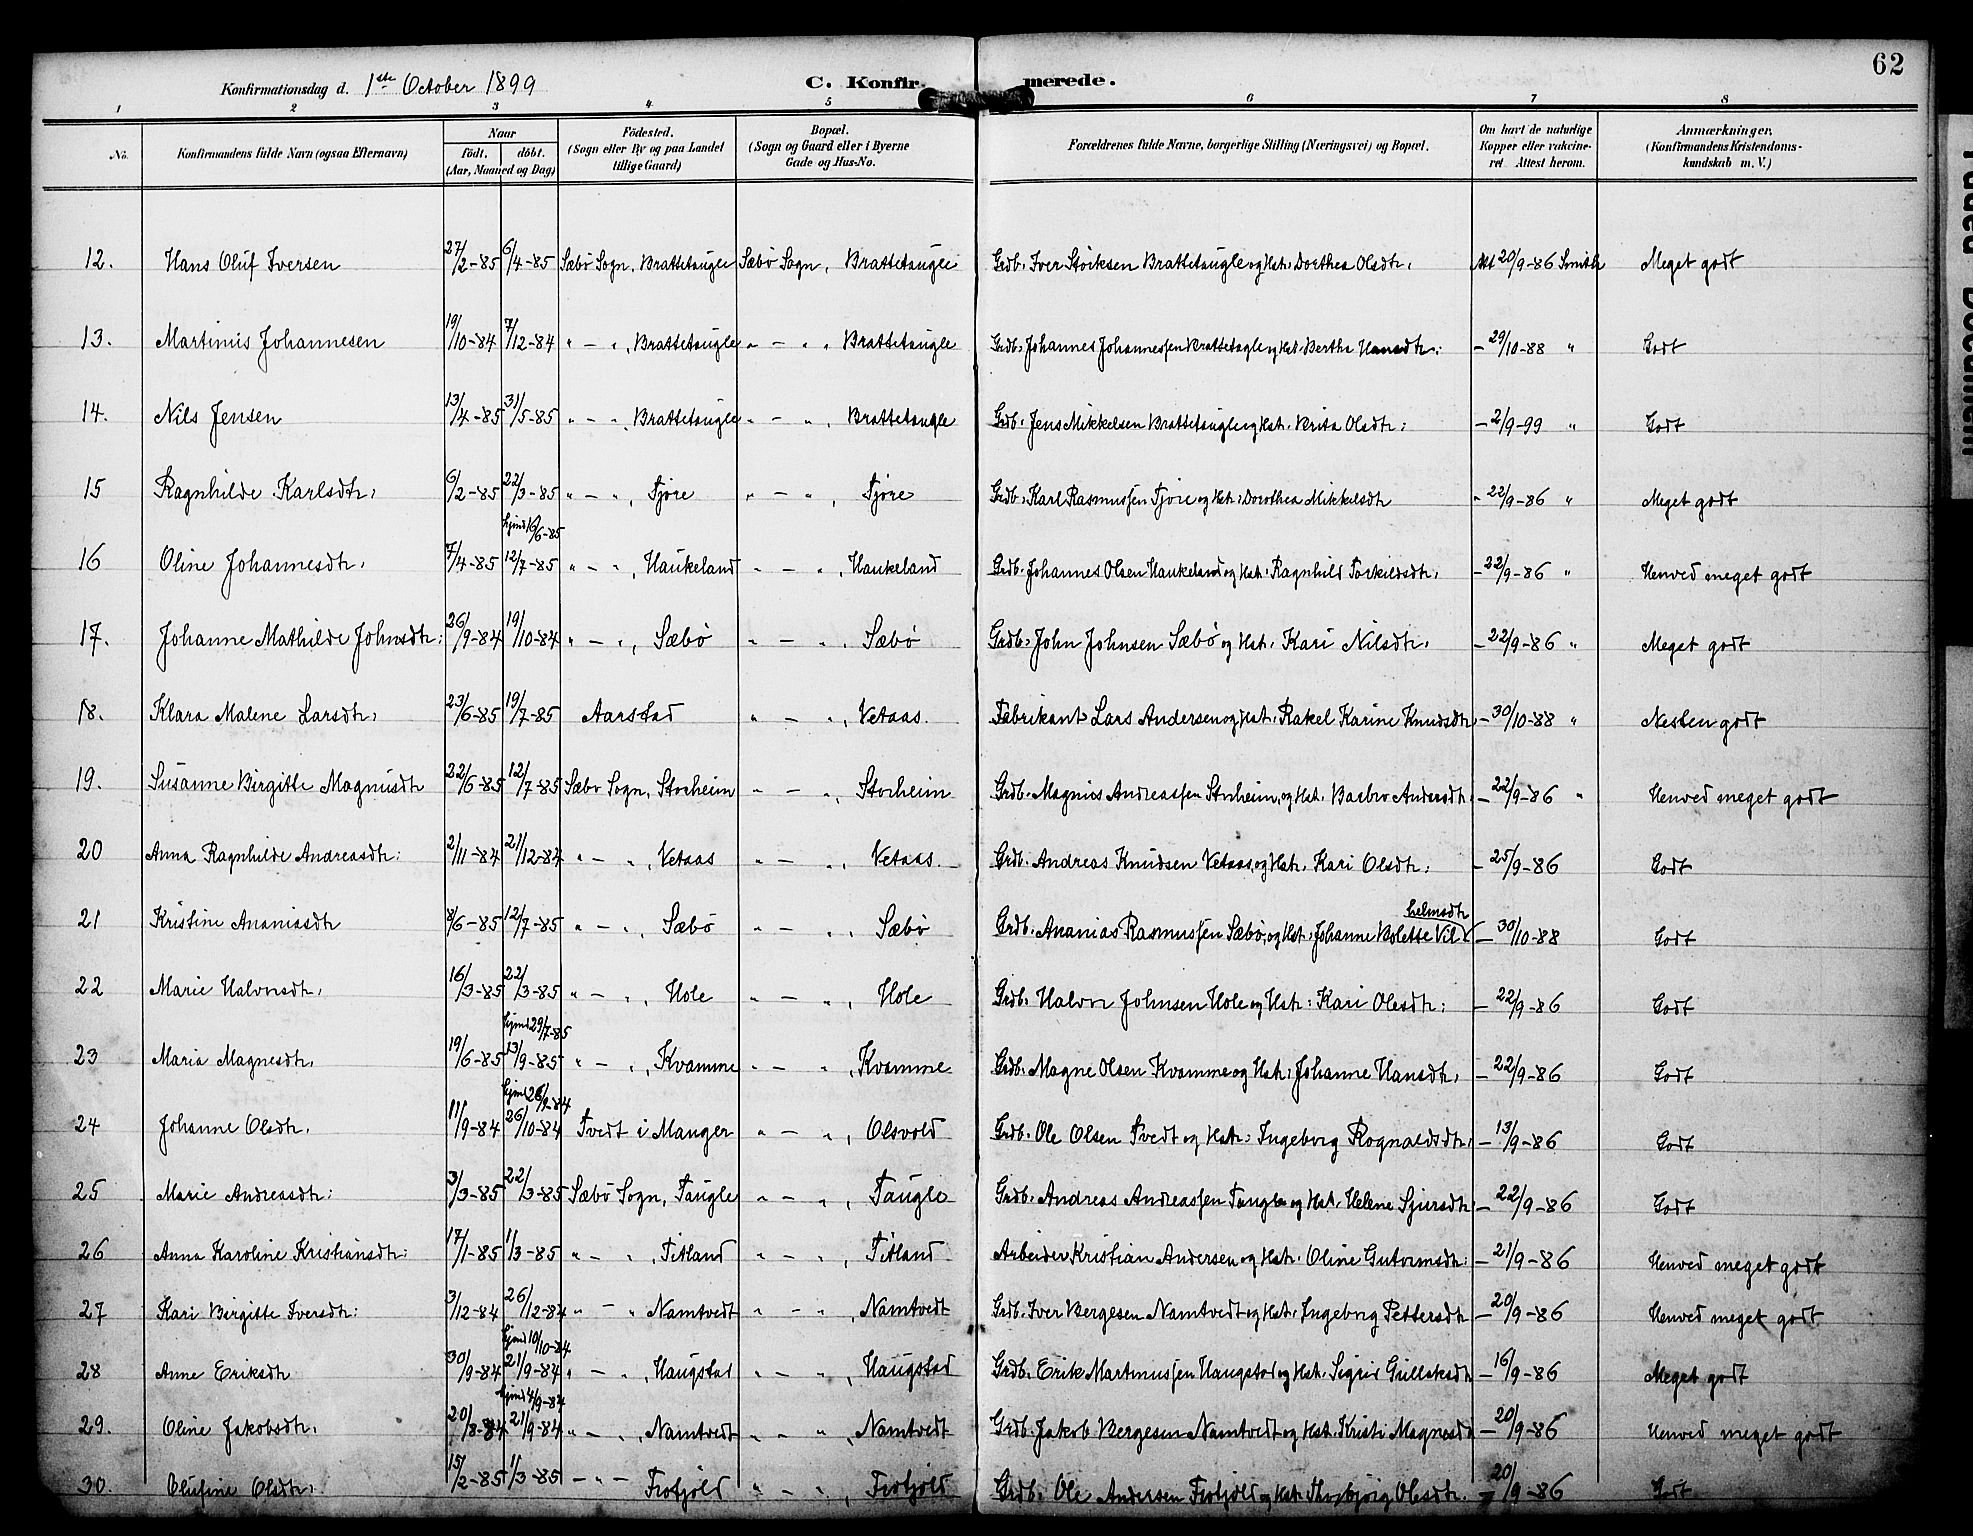 62
Konfirmationsdag d. 1ste October 1899 C. Konfirmerede.
1 2 3 4 5 6 7 8
No. Konfirmandens fulde Navn (ogsaa Efternavn) Naar født, døbt. (Aar, Maaned og Dag) Fødested. (Sogn eller By og paa Landet tillige Gaard) Bopæl. (Sogn og Gaard eller i Byerne Gade og Hus-No. Forældrenes fulde Navne, borgerlige Stilling (Næringsvei) og Bopæl. Om havt de naturlige Kopper eller vakcineret. Attest herom. Anmærkninger, (Konfirmandens Kristendomskundskab m. V.)
12. Hans Oluf Iversen 27/2-85 6/4-85 Sæbø Sogn, Brattetaugle Sæbø Sogn, Brattetaugle Grdb. Iver Størksen Brattetaugle og Hst. Dorthea Olsdtr. Att 20/9-86 Smith Meget godt
13. Martinus Johannesen 19/10-84 7/12-84 " - ", Brattetaugle " - ", Brattetaugle Grdb. Johannes Johannesen Brattetagle og Hst. Bertha Hansdtr. - 29/10-88 " Godt
14. Nils Jensen 13/4-85 31/5-85 " - ", Brattetaugle " - ", Brattetaugle Grdb. Jens Mikkelsen Brattetaugle og Hst. Brita Olsdtr. - 2/9-99 " Godt
15 Ragnhilde Karlsdtr. 6/2-85 22/3-85 " - ", Fjøre " - ", Fjøre Grdb. Karl Rasmussen Fjøre og Hst. Dorothea Mikkelsdtr " 22/9-86 " Meget godt
16 Oline Johannesdtr. 7/4-85 hjmd 16/6-85 12/7-85 " - ", Haukeland " - ", Haukeland Grdb. Johannes Olsen Haukeland og Hst. Ragnhild Torkildsdtr. - 22/9-86 " Henved meget godt
17. Johanne Mathilde Johnsdtr. 26/9-84 19/10-84 " - ", Sæbø " - ", Sæbø Grdb. John Johnsen Sæbø og Hst. Kari Nilsdtr. - 22/9-86 " Meget godt
18. Klara Malene Larsdtr. 23/6-85 19/7-85 Aarstad " - ", Vetaas. Fabrikant Lars Andersen og Hst. Rakel Karine Knudsdtr. - 30/10-88 " Nesten godt
19. Susanne Birgitte Magnusdtr 22/6-85 12/7-85 Sæbø Sogn, Storheim " - ", Storheim Grdb. Magnus Andreassen Storheim, og Hst. Basbro Andersdtr. - 22/9-86 " Henved meget godt
20 Anna Ragnhilde Andreasdtr. 2/11-84 21/12-84 " - ", Vetaas " - ", Vetaas. Grdb. Andreas Knudsen Vetaas, og Hst. Kari Olsdtr. - 25/9-86 Godt
21 Kristine Ananiasdtr 8/6-85 12/7-85 " - ", Sæbø " - ", Sæbø Grdb. Ananias Rasmussen Sæbø, og Hst. Johanne Bolette Vilhelmsdtr - 30/10-88 Godt
22 Marie Halvorsdtr. 16/3-85 22/3-85 " - ", Hole " - ", Hole Grdb. Halvor Johnsen Hole og Hst. Kari Olesdtr. - 22/9-86 Godt
23 Maria Magnesdtr. 19/6-85 hjmd 29/7-85 13/9-85 " - ", Kvamme " - ", Kvamme Grdb. Magne Olsen Kvamme og Hst. Johanne Hansdtr. - 22/9-86 Godt
24 Johanne Olsdtr. 11/9-84 hjmd 26/9-84 26/10-84 Tvedt i Manger " - ", Olsvold Grdb. Ole Olsen Tvedt og Hst. Ingeborg Rognaldsdtr. - 13/9-86 Godt
25 Marie Andreasdtr. 3/3-85 22/3-85 Sæbø Sogn, Taugle " - ", Taugle Grdb. Andreas Andreassen Taugle og Hst. Helene Sjursdtr. - 22/9-86 Godt
26 Anna Karoline Kristiansdtr. 17/1-85 1/3-85 " - ", Titland " - ", Titland Arbeider Kristian Andersen og Hst. Oline Gutormsdtr. - 21/9-86 Henved meget godt
27 Kari Birgitte Iversdtr. 3/12-84 26/12-84 " - " Namtvedt " - ", Namtvedt Grdb. Iver Bergesen Namtvedt og Hst. Ingeborg Pettersdtr - 20/9-86 Henved meget godt
28 Anne Eriksdtr 30/9-84 hjmd 10/10-84 21/9-84 " - ", Haugstad " - ", Haugstad Grdb. Erik Martinussen Haugstad og Hst. Sigrid - 16/9-86 Meget godt
29. Oline Jakobsdtr. 20/8-84 hjmd 4/9-84 21/9-84 " - ", Namtvedt " - ", Namtvedt Grdb. Jakob Bergesen Namtvedt og Hst. Kristi Magnesd - 20/9-86 Henved meget godt
30. Olufine Olsdtr. 15/2-85 1/3-85 - " - Frotjold " - ", Frotjold Grdb. Ole Andersen Frotjold og Hst. Thorbjørg Olesdtr. - 20/9-86 Godt